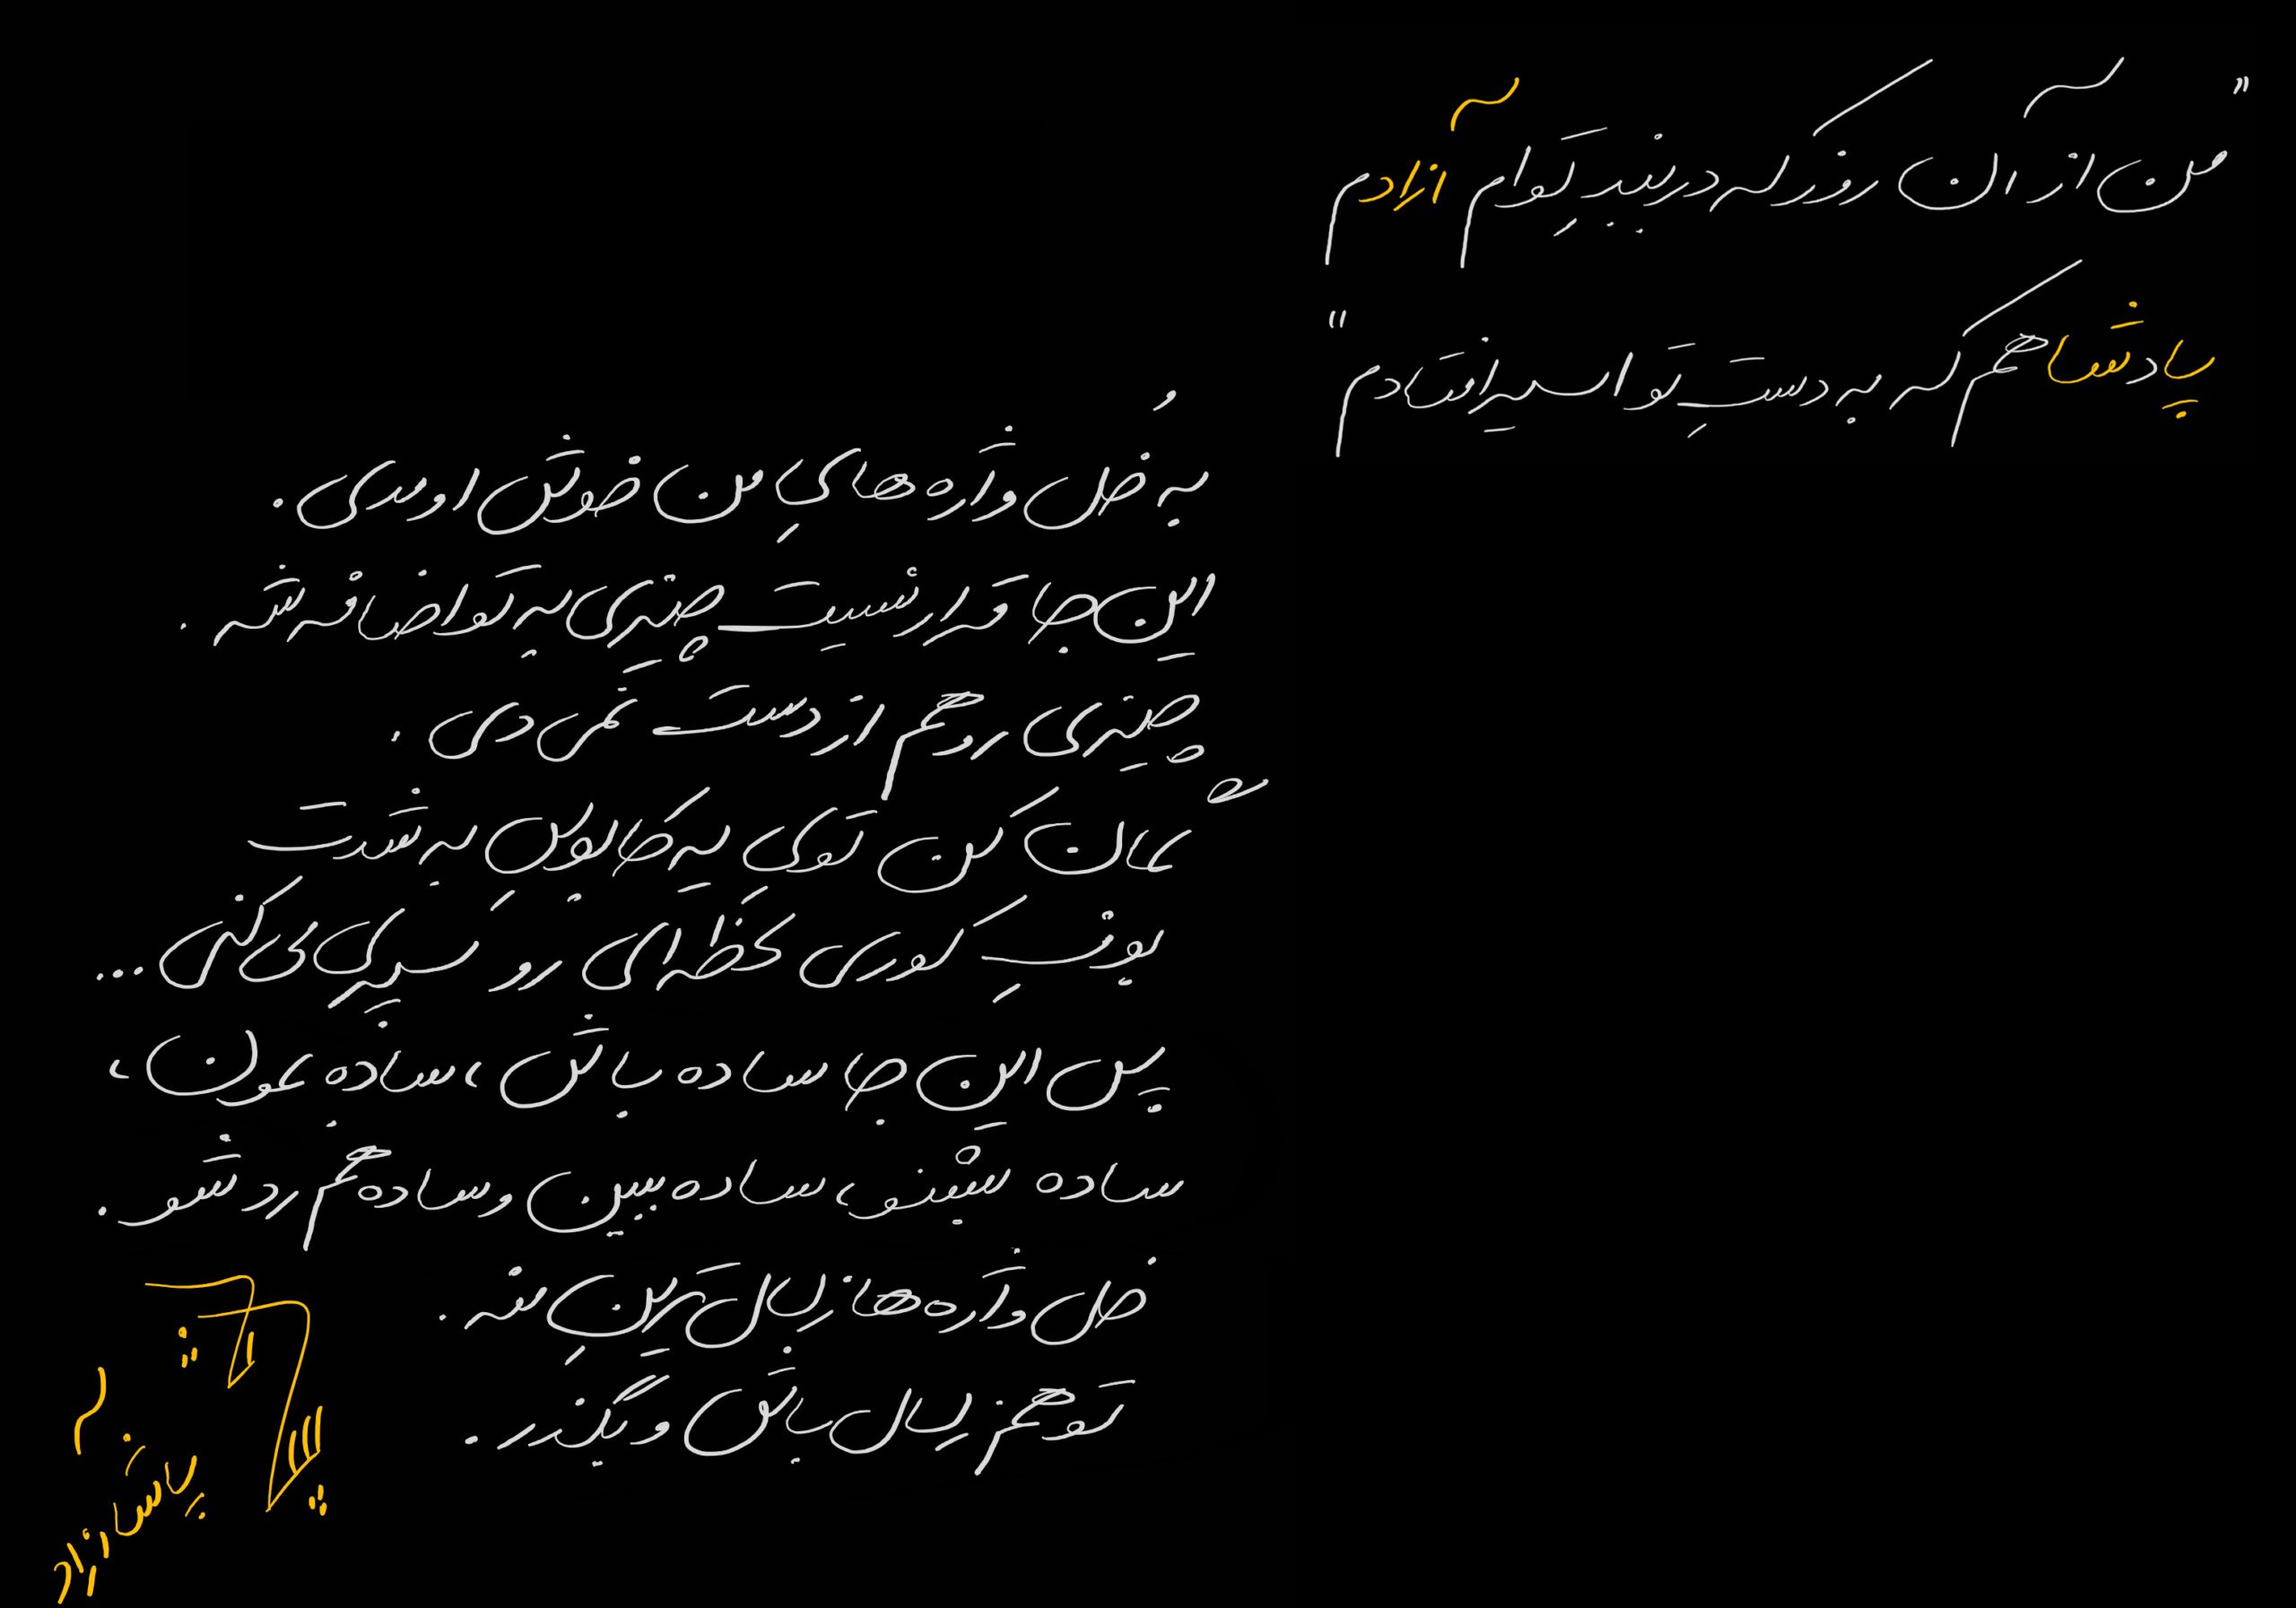 "من از آن روز که در بندِ توام آزادم
پادشاهم که به دستِ تو اسیر افتادم"
به خُل واژه‌های‌ِ من خوش اومدی.
این جا قرار نیست چیزی به تو اضافه شه.
چیزی رو هم از دست نمی‌دی.
گمان کن توی یه کابوسِ به شدت
پوفِ کوری لحظه‌ای رو سپری می‌کنی...
پس این جا ساده باش، ساده بمون،
ساده بشنو، ساده ببین و ساده هم رد شو.
خل واژه‌ها زبالَ‌ترینِ منه.
تو هم زلال باش و بگذر.
پاشا آزاد